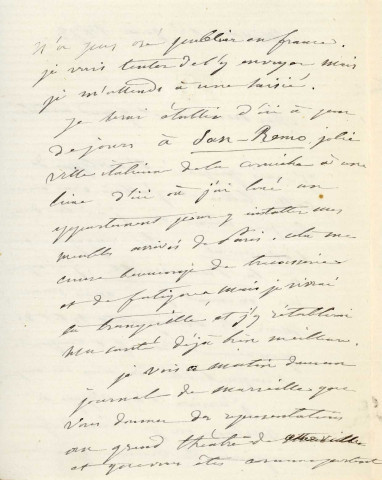 n'a pas osé publier en france.
je vais tenter de l'y envoyer mais
je m'attends à une saisie.
je serai établie d'ici à peu
de jours à San-Remo, jolie
ville italienne de la corniche à une
lieue d'ici où j'ai loué un
appartement pour y installer mes
meubles arrivés de Paris. cela me
cause beaucoup de tracasseries
et de fatigues mais je vivrai
là tranquille et j'y rétablirai
ma santé déjà bien meilleure.
je vois ce matin dans un
journal de marseille que
vous donnez des représentations
au grand théâtre de
et que vous êtes